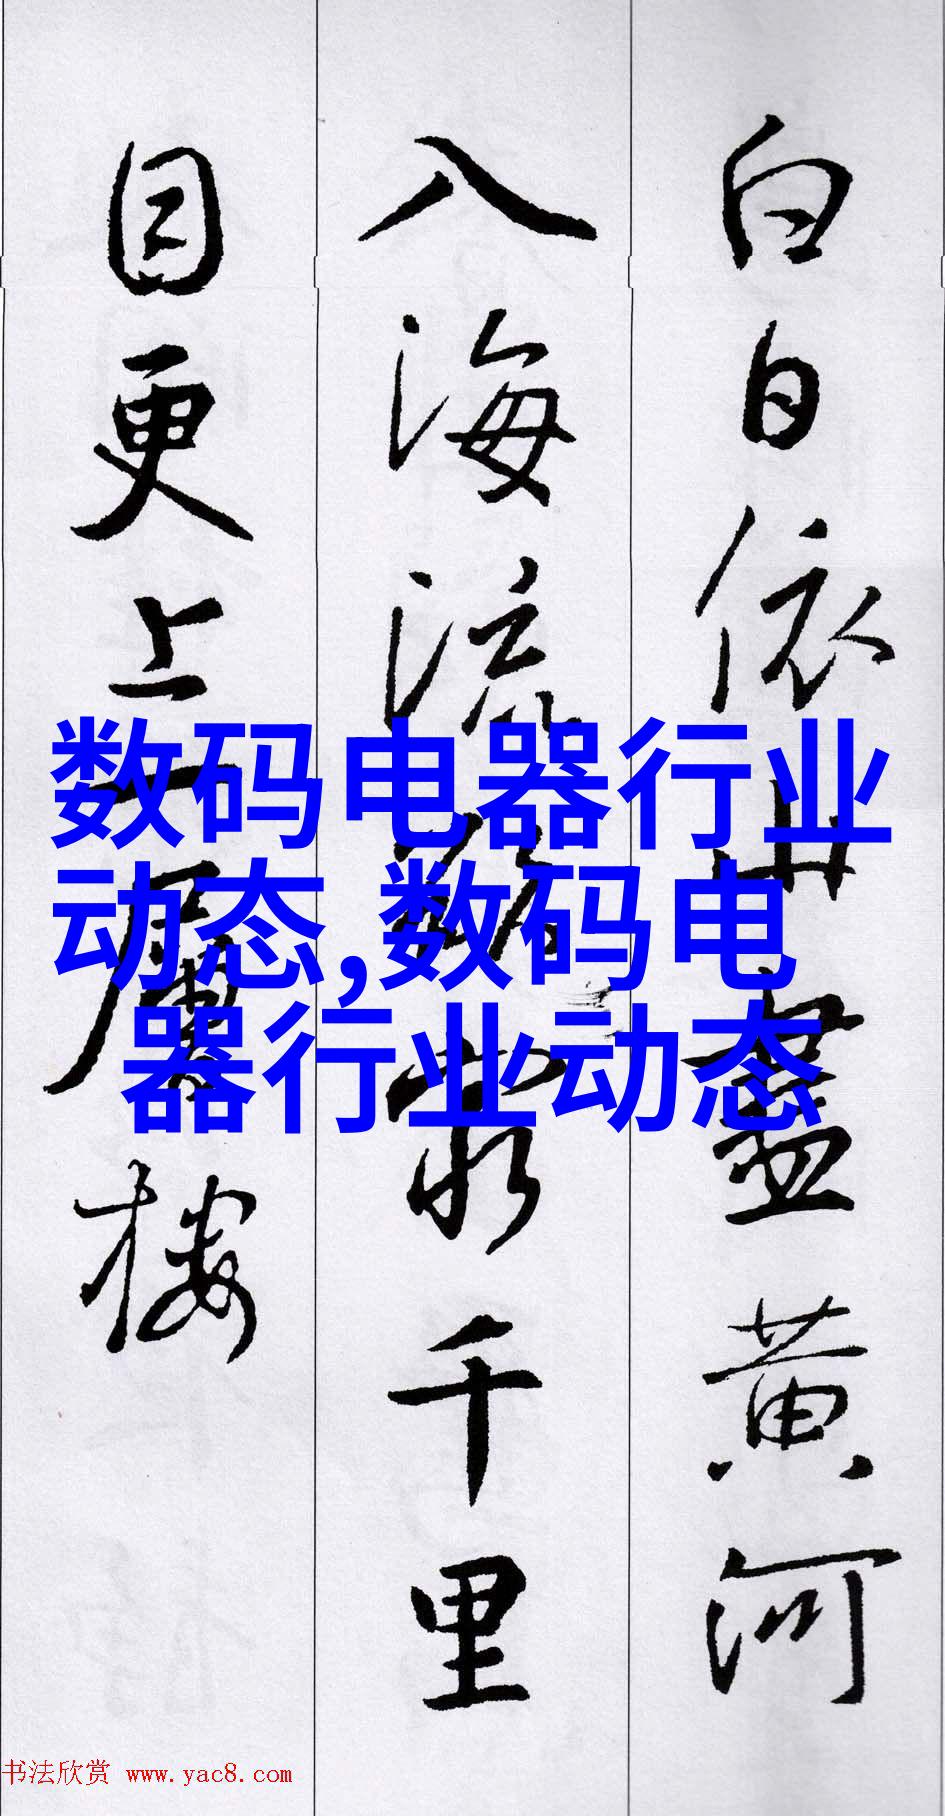 白日依山盡黄河
入海流欲窮千里
目更上一層樓
数码电器行业
动态,数码电
器行业动态
书法欣赏 www.yac8.com